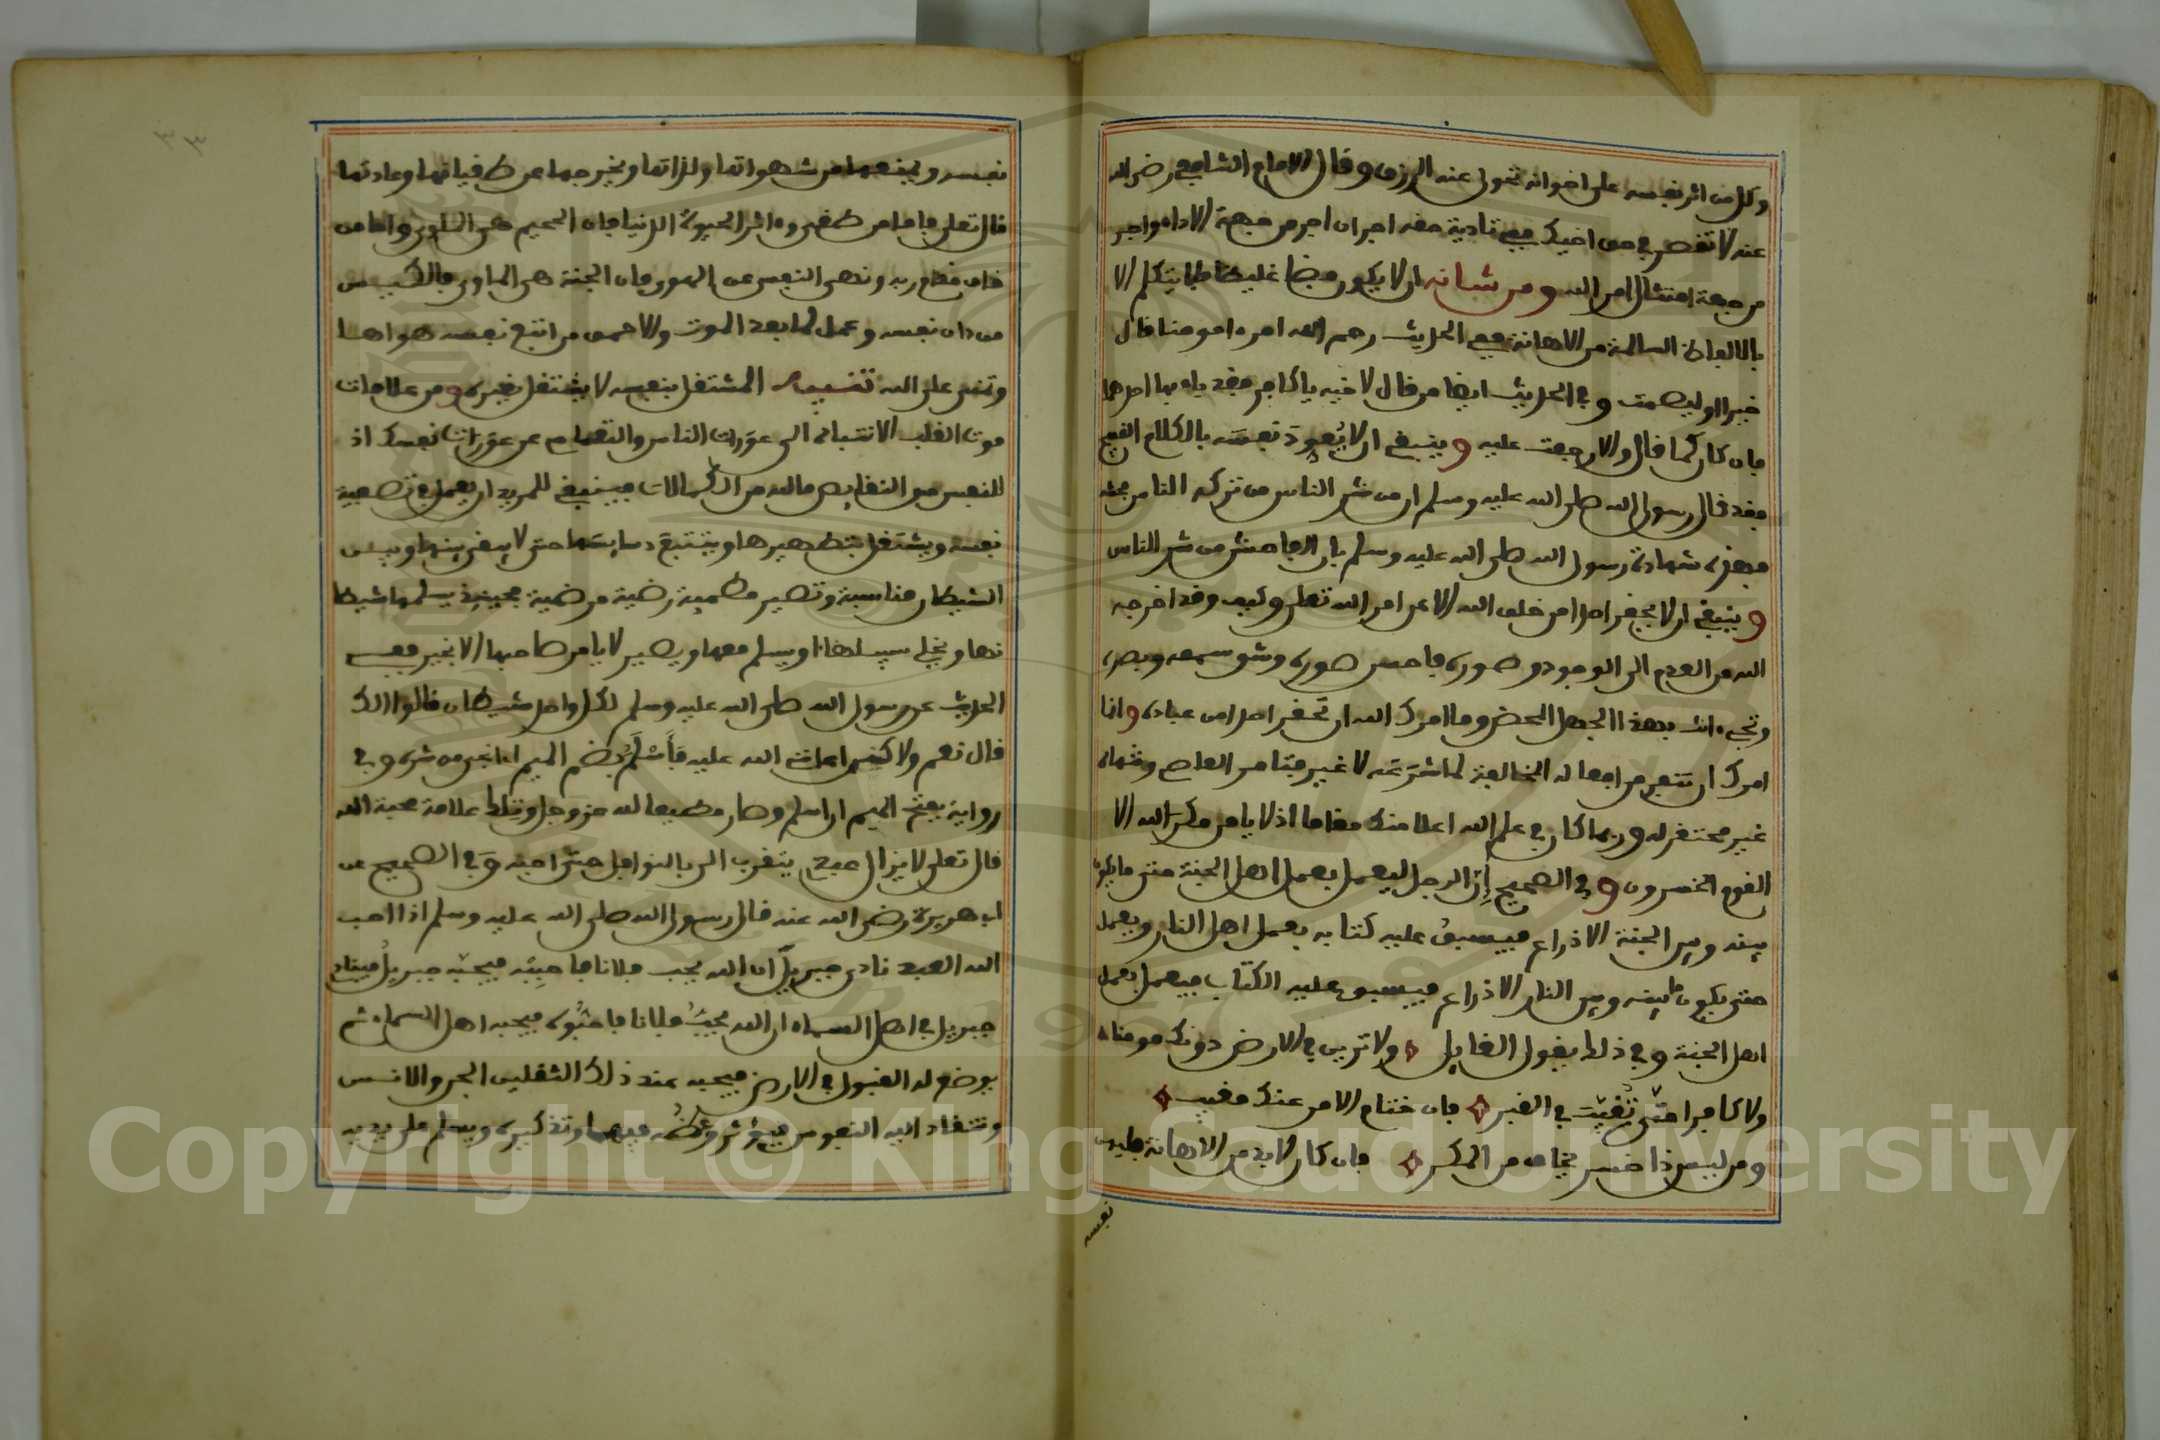 وكل من اثر نفسه على اخوانه تحول عنه الرزق وقال الامام الشافعي رضي الله
عنه لا تقصر في حق اخيك ففي تادية حقه اجران اجر من جهة الاداء واجر
من جهة امتثال امر الله ومن شانه ان لا يكون فضا غليظا فلا يتكلم الا
بالالفاظ السالمة من الاهانة ففي الحديث رحم الله امرءا مومنا قال
خيرا او ليصمت وفي الحديث ايضا من قال لاخيه يا كافر فقد باء بها احدهما
فان كان كما قال والا رجعت عليه وينبغي ان لا يُعود نفسَه بالكلام القبيح
فقد قال رسول الله صلى الله عليه وسلم ان من شر الناس من تركه الناس فحشه
فهذه شهادة رسول الله صلى الله عليه وسلم بان الفاحش من شر الناس
وينبغي ان لا يحقر احدا من خلق الله الا عن امر الله تعلى وكيف وقد اخرجه
الله من العدم الى الوجود وصوره فاحسن صوره وشق سمعه وبصره
وتجيء انت بهذا الجهل المحض وما امرك الله ان تحقر احدا من عباده وانما
امرك ان تتغير من افعاله المخالفة لما شرعه لا غير فيتامر العاصي وتنهاه
غير محتقر له وربما كان في علم الله اعلا منك مقاما اذ لا يامن مكر الله الا
القوم الخسرون وفي الصحيح إنّ الرجل ليعمل بعمل اهل الجنة حتى ما يكون
بينه وبين الجنة الا ذراع فيسبق عليه كتابه بعمل اهل النار ويعمل
حتى يكون ما بينه وبين النار الا ذراع فيسبق عليه الكتاب فيعمل بعمل
اهل الجنة وفي ذلك يقول القايل ولا ترين في الارض دونك مومنا
ولا كافرا حتى تُغيّب في القبر فان ختام الامر عنك مغيب
ومن ليس ذا خسر يخاف من المكر فان كان لا بد من الاهانة فليهن
نفسه
نفسه ويمنعها من شهواتها ولذاتها ويخرجها عن طغيانها وعادتها
قال تعلى فاما من طغى وءاثر الحيوة الدنيا فان الجحيم هي الماوى واما من
خاف مقام ربه ونهى النفس عن الهوى فان الجنة هي الماوى فالكيس
من دان نفسه وعمل لما بعد الموت والاحمق من اتبع نفسه هواها
وتمنى على الله تنبيه المشتغل بنفسه لا يشتغل بغيره ومن علامات
موت القلب الانتباه الى عورات الناس والتعام عن عورات نفسك اذ
للنفس من النقايص ما لله من الكمالات فينبغي للمريد ان يعمل في تصفية
نفسه ويشتغل بتطهيرها ويتتبع دسايسها حتى لا يبقى بينها وبين
الشيطان مناسبة وتصير مطمينة رضية مرضية فحينيذ يسلمها شيطا
نها ويخلي سبيلها او يسلم معها ويصير لا يامر صاحبها الا بخير ففي
الحديث عن رسول الله صلى الله عليه وسلم لكل واحد شيطان قالوا الك
قال نعم ولاكنى اعانني الله عليه فأَسْلَمُ بضم الميم اي انجى من شره وفي
رواية بفتح الميم اي اسلم وصار مطيعا لله عز وجل وتلك علامة محبة الله
قال تعلى لا يزال عبدي يتقرب الي بالنوافل حتى احبه وَفي الصحيح عن
ابي هريرة رضي الله عنه قال رسول الله صلى الله عليه وسلم اذا احب
الله العبد نادى جبريل ان الله يحب فلانا فاحبِبْه فيحبّه جبريلُ فينادي
جبريل في اهل السماء ان الله يحبُّ فلانا فاحبُّوه فيحبه اهل السماء ثم
يوضع له القبول في الارض فيحبه عند ذلك الثقلين الجن والانس
وتنقاد اليه النفوس فيؤثر وعْظُه فيها وتذكيره ويسلم على يديه
Copyright © King Saud University